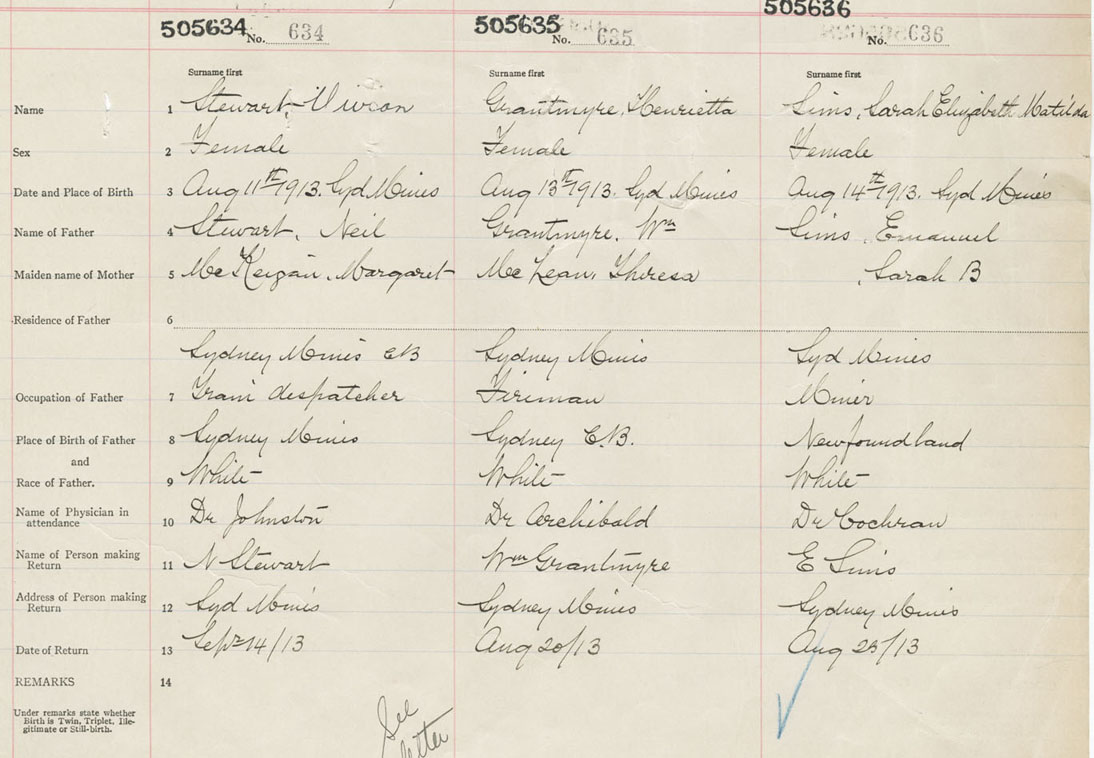 505634 No. 634 505635 No. 635 505636 No. 636
Surname first Surname first Surname first
Name 1 Stewart, Vivian Grantmyre, Henrietta Sims, Sarah Elizabeth Matilda
Sex 2 Female Female Female
Date and Place of Birth 3 Aug 11th 1913. Syd Mines Aug 13th 1913. Syd Mines Aug 14th 1913. Syd Mines
Name of Father 4 Stewart, Neil Grantmyre, Wm Sims, Emanuel
Maiden name of Mother 5 McKeigan, Margaret McLean, Theresa , Sarah B
Residence of Father 6
Sydney Mines CB Sydney Mines Syd Mines
Occupation of Father 7 Train despatcher Fireman Miner
Place of Birth of Father 8 Sydney Mines Sydney C.B. Newfoundland
and
Race of Father. 9 White White White
Name of Physician in attendance 10 Dr Johnston Dr Archibald Dr Cochran
Name of Person making Return 11 N Stewart Wm Grantmyre E Sims
Address of Person making Return 12 Syd Mines Sydney Mines Sydney Mines
Date of Return 13 Sept 14/13 Aug 20/13 Aug 25/13
REMARKS 14
Under remarks state whether
Birth is Twin, Triplet. Ille-
gitimate or Still-birth.
See
letter